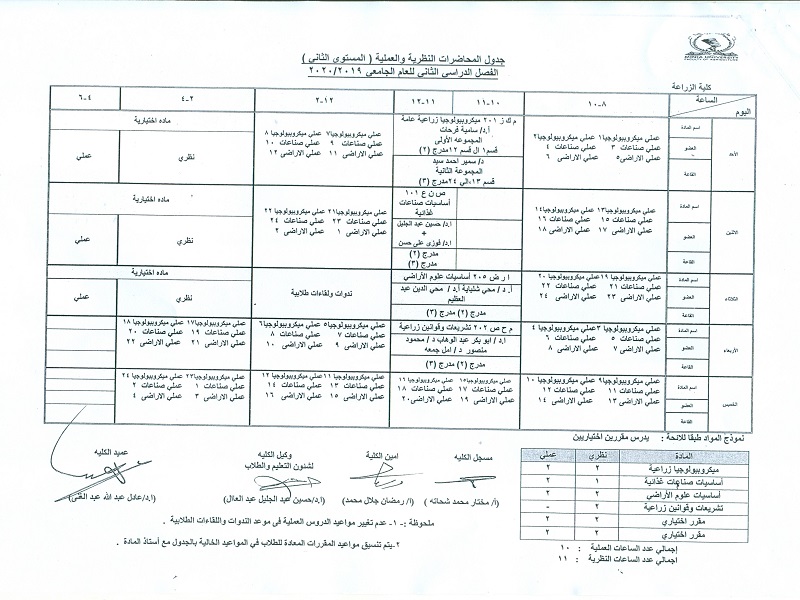 MINIA UNIVERSITY
جدول المحاضرات النظرية والعملية ( المستوى الثاني )
الفصل الدراسى الثانى للعام الجامعى ٢٠٢٠/٢٠١٩
كلية الزراعة
الساعة
اليوم
٨-١٠
١٠-١١
١١-١٢
١٢-٢
٢-٤
٤-٦
الأحد
اسم المادة
العضو
القاعة
عملي ميكروبيولوجيا١ عملي ميكروبيولوجيا٢
عملي صناعات ٣ عملي صناعات ٤
عملي الاراضى ٥ عملي الاراضى ٦
م ك ز ٢٠١ ميكروبيولوجيا زراعية عامة
أ.د/ سامية فرحات
المجموعه الأولى
قسم ١ ال قسم ١٢ مدرج (٢)
د/ سمير احمد سيد
المجموعة الثانية
قسم ١٣،الي ٢٤ مدرج (٣)
عملي ميكروبيولوجيا٧ عملي ميكروبيولوجيا ٨
عملي صناعات ٩ عملي صناعات ١٠
عملي الاراضى ١١ عملي الاراضى ١٢
ماده اختيارية
نظري
عملي
الاثنين
اسم المادة
العضو
القاعة
عملي ميكروبيولوجيا١٣ عملي ميكروبيولوجيا١٤
عملي صناعات ١٥ عملي صناعات ١٦
عملي الاراضى ١٧ عملي الاراضى ١٨
ص ن ع ١٠١
أساسيات صناعات
غذائية
ا.د/ حسين عبد الجليل
+
ا.د/ فوزى على حسن
مدرج (٢)
مدرج (٣)
عملي ميكروبيولوجيا٢١ عملي ميكروبيولوجيا ٢٢
عملي صناعات ٢٣ عملي صناعات ٢٤
عملي الاراضى ١ عملي الاراضى ٢
ماده اختيارية
نظري
عملي
الثلاثاء
اسم المادة
العضو
القاعة
عملي ميكروبيولوجيا ١٩ عملي ميكروبيولوجيا ٢٠
عملي صناعات ٢١ عملي صناعات ٢٢
عملي الاراضى ٢٣ عملي الاراضى ٢٤
ا ر ض ٢٠٥ أساسيات علوم الأراضي
أ. د / محي شلبايه أ.د / محي الدين عبد
العظيم
مدرج (٢) مدرج (٣)
ندوات ولقاءات طلابية
ماده اختيارية
نظري
عملي
الأربعاء
اسم المادة
العضو
القاعة
عملي ميكروبيولوجيا ٣ عملي ميكروبيولوجيا ٤
عملي صناعات ٥ عملي صناعات ٦
عملي الاراضى ٧ عملي الاراضى ٨
م ح ص ٢٠٢ تشريعات وقوانين زراعية
ا.د/ ابو بكر عبد الوهاب د/ محمود
منصور د / امل جمعه
مدرج (٢) مدرج (٣)
عملي ميكروبيولوجيا٥ عملي ميكروبيولوجيا٦
عملي صناعات ٧ عملي صناعات ٨
عملي الاراضى ٩ عملي الاراضى ١٠
عملي ميكروبيولوجيا١٧ عملي ميكروبيولوجيا ١٨
عملي صناعات ١٩ عملي صناعات ٢٠
عملي الاراضى ٢١ عملي الاراضى ٢٢
الخميس
اسم المادة
العضو
القاعة
عملي ميكروبيولوجيا٩ عملي ميكروبيولوجيا ١٠
عملي صناعات ١١ عملي صناعات ١٢
عملي الاراضى ١٣ عملي الاراضى ١٤
عملي ميكروبيولوجيا١٥ عملي ميكروبيولوجيا ١٦
عملي صناعات ١٧ عملي صناعات ١٨
عملي الاراضى ١٩ عملي الاراضى٢٠
عملي ميكروبيولوجيا ١١ عملي ميكروبيولوجيا ١٢
عملي صناعات ١٣ عملي صناعات ١٤
عملي الاراضى ١٥ عملي الاراضى ١٦
عملي ميكروبيولوجيا٢٣ عملي ميكروبيولوجيا ٢٤
عملي صناعات ١ عملي صناعات ٢
عملي الاراضى ٣ عملي الاراضى ٤
نموذج المواد طبقا للانحة : يدرس مقررين اختياريين
المادة نظري عملي
ميكروبيولوجيا زراعية ٢ ٢
أساسيات صناعات غذائية ١ ٢
أساسيات علوم الأراضي ٢ ٢
تشريعات وقوانين زراعية ٢ -
مقرر اختياري ٢ ٢
مقرر اختياري ٢ ٢
إجمالي عدد الساعات العملية ١٠
إجمالي عدد الساعات النظرية ١١
مسجل الكليه
(أ/ مختار محمد شحاته)
امين الكلية
(ا/ رمضان جلال محمد)
وكيل الكليه
لشئون التعليم والطلاب
(ا.د/حسين عبد الجليل عبد العال)
عميد الكليه
(ا.د/عادل عبد الله عبد الغنى)
ملحوظة :- ١- عدم تغيير مواعيد الدروس العملية فى موعد الندوات واللقاءات الطلابية .
٢-يتم تنسيق مواعيد المقررات المعادة للطلاب في المواعيد الخالية بالجدول مع أستاذ المادة .